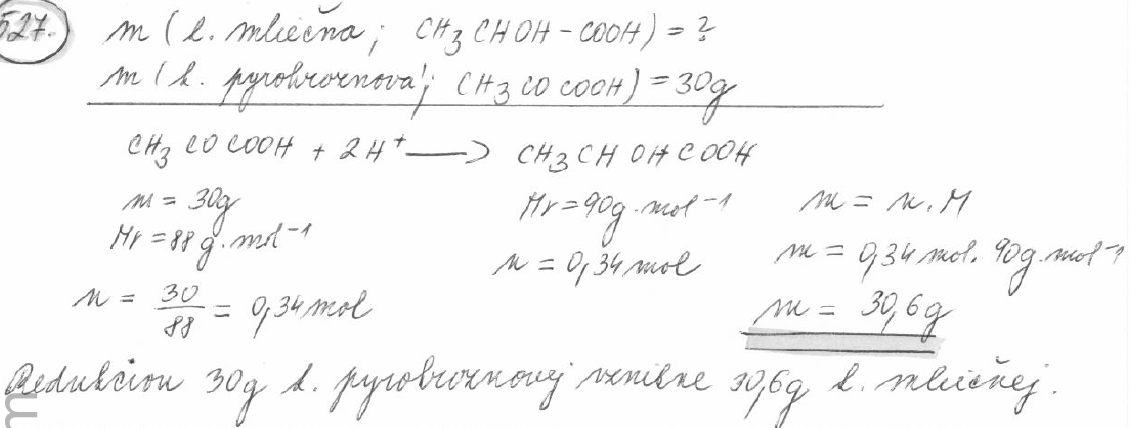 527. m (k. mliečna; CH3CHOH-COOH) = ?
m (k. pyrohroznová; CH3COCOOH) = 30g
CH3COCOOH + 2H+ → CH3CHOHCOOH
m = 30g Mr = 90g.mol-1 m = n.M
Mr = 88g.mol-1 n = 0,34mol m = 0,34mol. 90g.mol-1
n = 30/88 = 0,34mol m = 30,6g
Redukciou 30g k. pyrohroznovej vznikne 30,6g k. mliečnej.
m